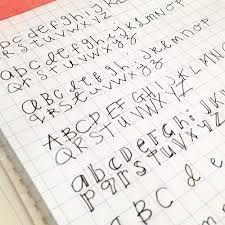 bcdefghijklmnop
qrstuvwxyz
abcdefghijklmnop
qrstuvwxyz
abcdefghijklmnop
qrstuvwxyz
ABCDEFGHIJKLMNO
QRSTUVWXYZ
abcdefghi
pqrstuvwxyz
ABCDe